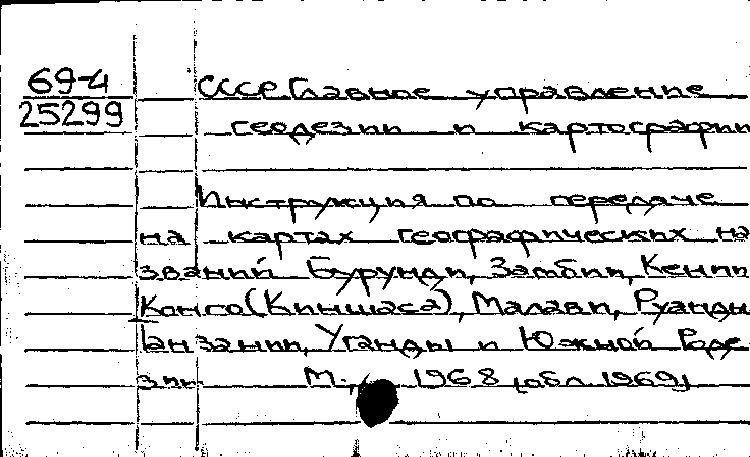 69-4
25299
СССР. Главное управление
геодезии и картографии
Инструкция по передаче
на картах географических на
званий Бурунди, Замбии, Кении
Конго (Киншаса), Малави, Руанды
Танзании, Уганды и Южной Роде
зии. М., 1968 (обл. 1969)